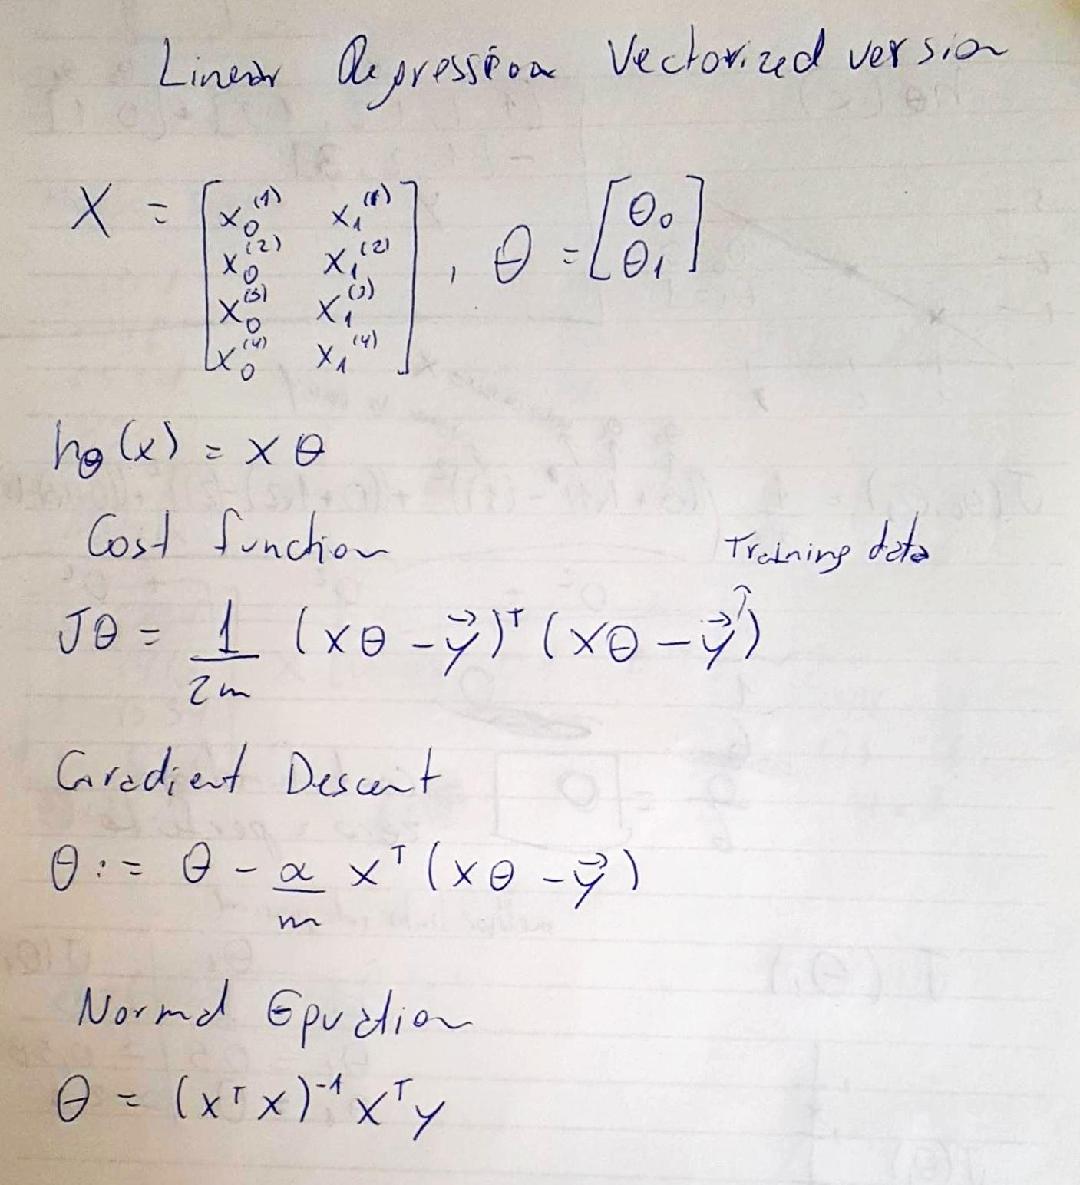 Linear Regression Vectorized version
X = [x₀⁽¹⁾ x₁⁽¹⁾
x₀⁽²⁾ x₁⁽²⁾
x₀⁽³⁾ x₁⁽³⁾
x₀⁽⁴⁾ x₁⁽⁴⁾], θ = [θ₀
θ₁]
h_θ(x) = xθ
Cost function
Training data
Jθ = 1/2m (xθ - y⃗)ᵀ (xθ - y⃗)
Gradient Descent
θ := θ - α/m xᵀ (xθ - y⃗)
Normal Equation
θ = (xᵀx)⁻¹ xᵀy